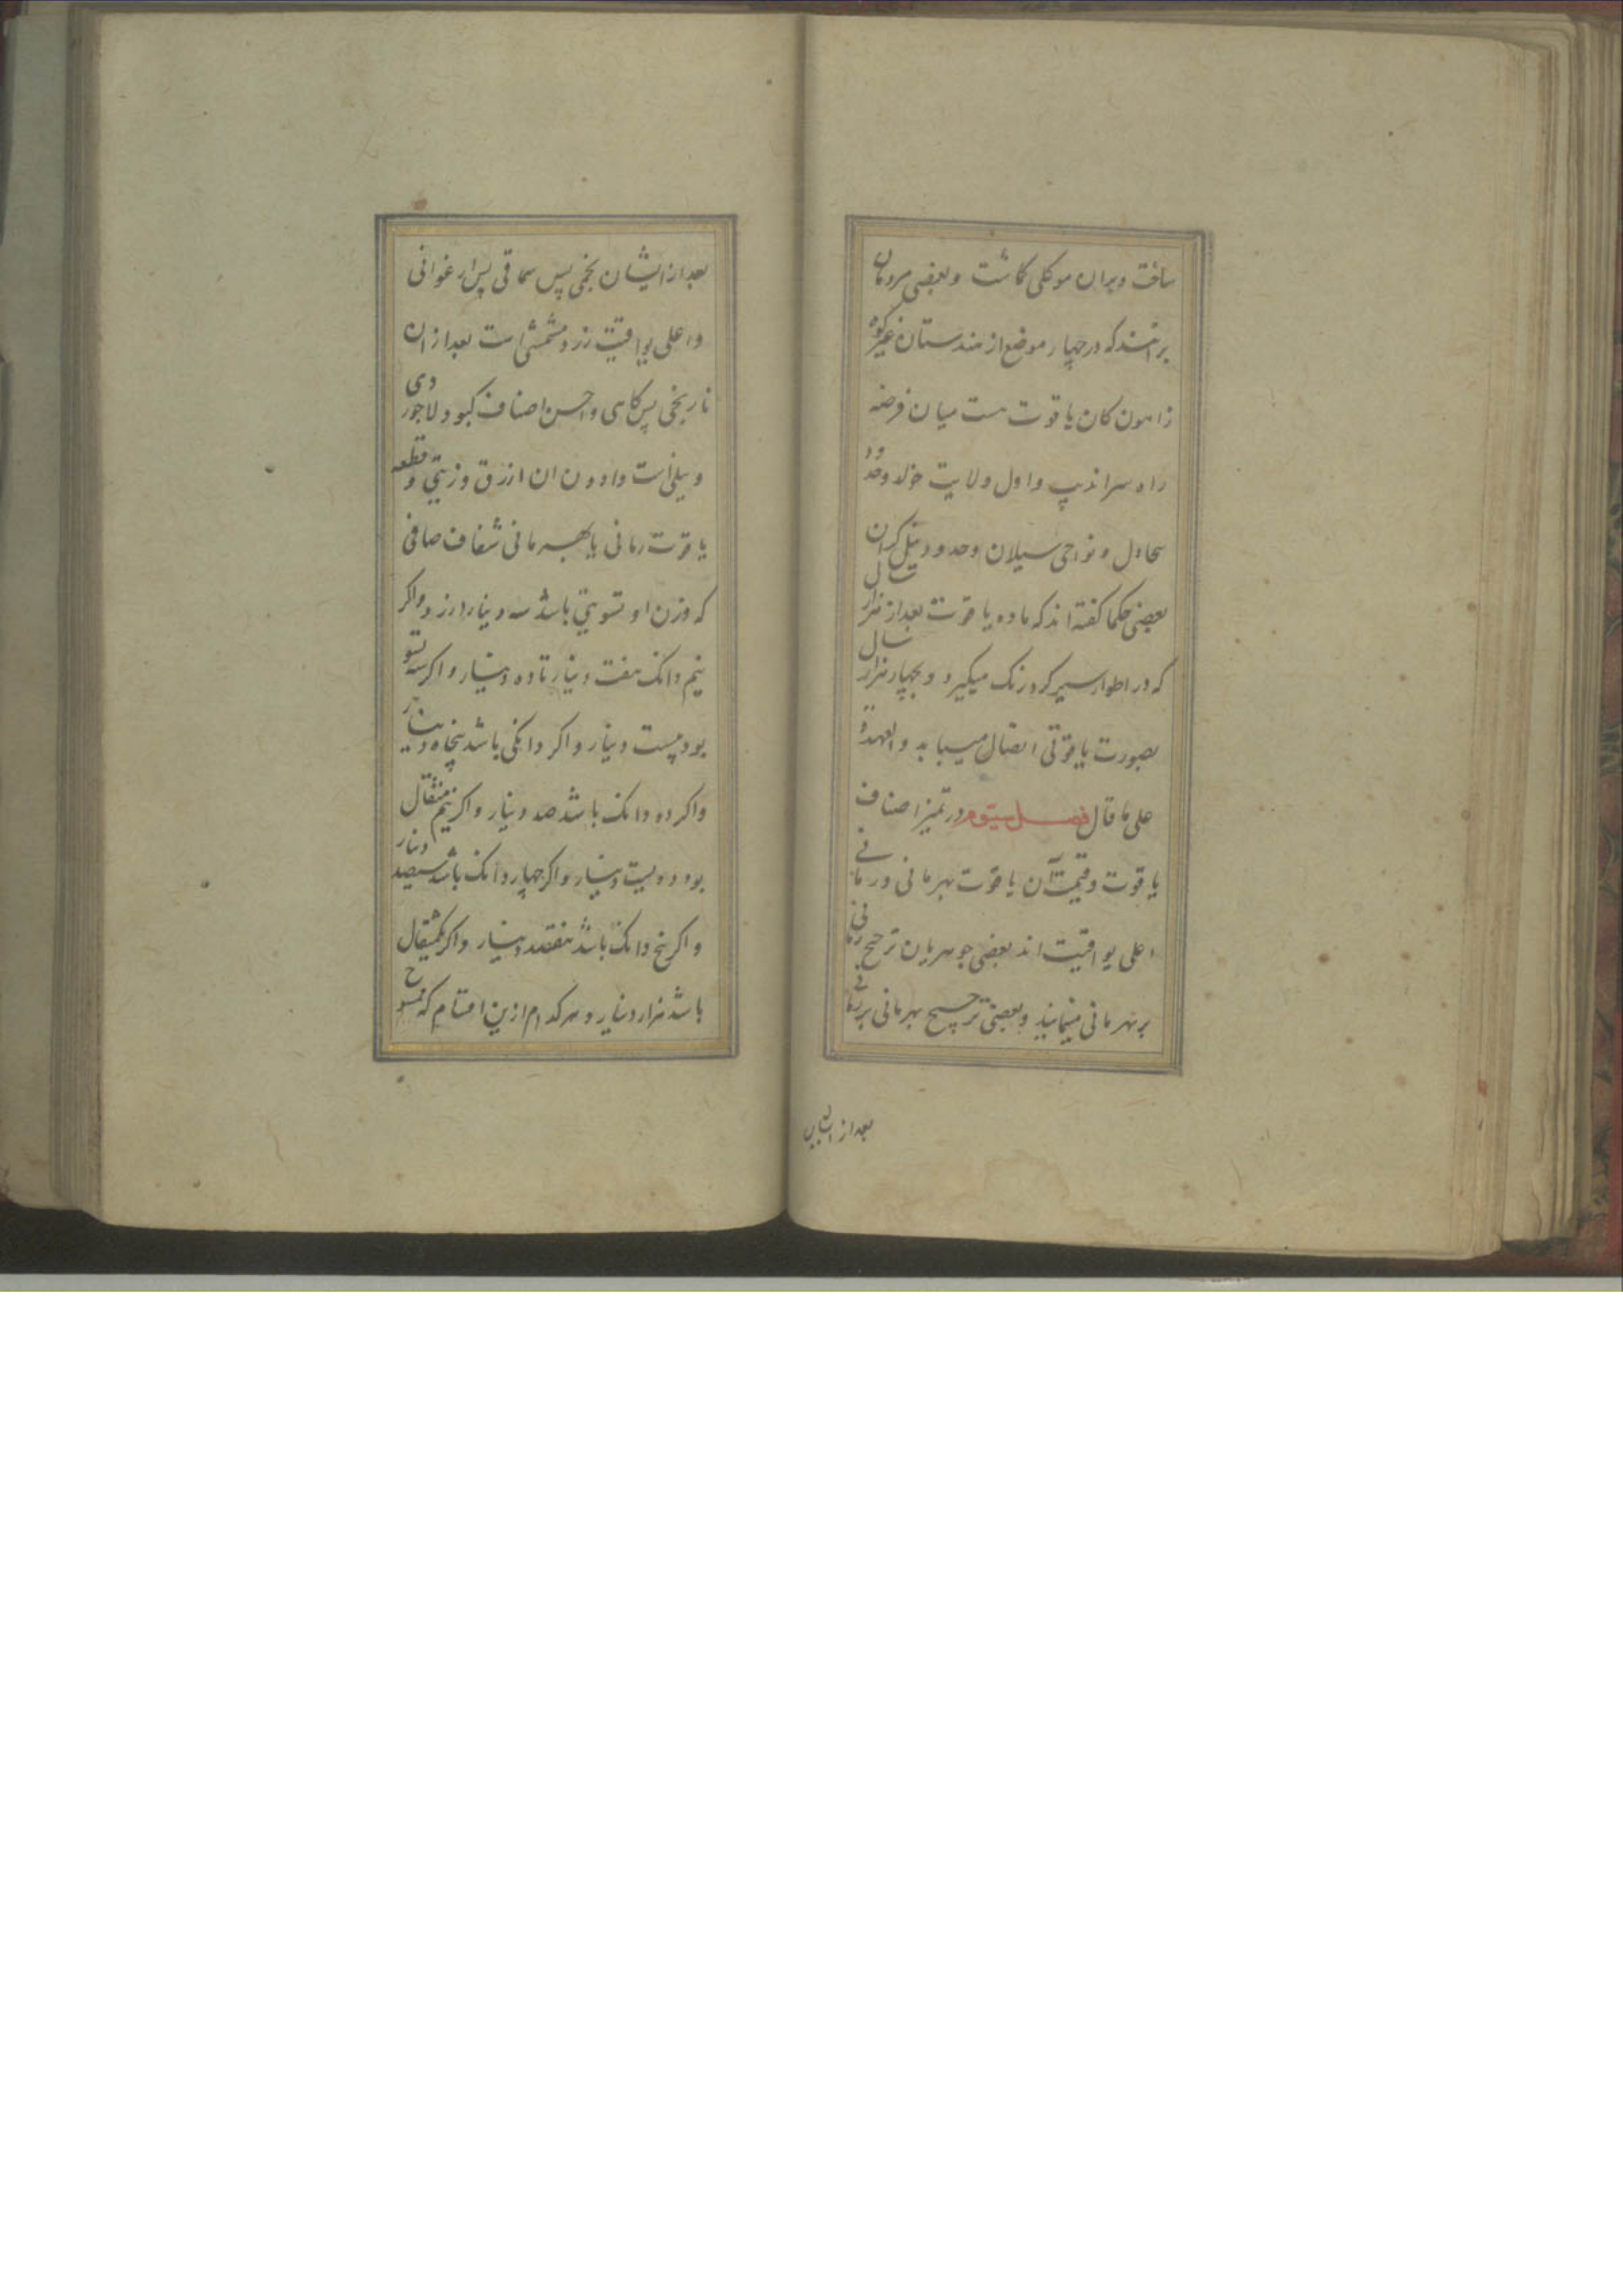 ساخت و بران موکلی کماشت و بعضی مردمان
برانند که در چهار موضع از هندستان غیر کوه
زاهون کان یاقوت هست میان فرضه
راه سراندیپ و اول ولایت خولد و حدود
و نواحی سیلان و حدود
بعضی حکما کفته اند که ماده یاقوت بعد از هزار سال
که در اطوار سیر کرد رنک میکیرد و بچهار هزار سال
بصورت یاقوتی اتصال مییابد و العهدة
علی ما قال فصل سیوم در تمیز اصناف
یاقوت و قیمت آن یاقوت بهرمانی و رمانی
اعلی یواقیت اند بعضی جوهریان ترجیح رمانی
بر بهرمانی مینمایند و بعضی ترجیح بهرمانی بر رمانی
بعد از ایشان
بعد از ایشان پس سماقی پس ارغوانی
و اعلی یواقیت زرد مشمشی است بعد از ان
نارنجی پس کاهی و احسن اصناف کبود لاجوردی
و نیلی است و ادون ان ازرق و زیتی و قطعه
یاقوت رمانی یا بهرمانی شفاف صافی
که وزن او تسویی باشد سه دینار ارزد و اکر
نیم دانک هفت دینار تا ده دینار و اکر سه تسو
بود بیست دینار و اکر دانکی باشد پنجاه دینار
و اکر دو دانک باشد صد دینار و اکر نیم مثقال
بود دویست دینار و اکر چهار دانک باشد سیصد دینار
و اکر پنج دانک باشد هفتصد دینار و اکر یکمثقال
باشد هزار دینار و هر کدام ازین اقسام که ممسوح